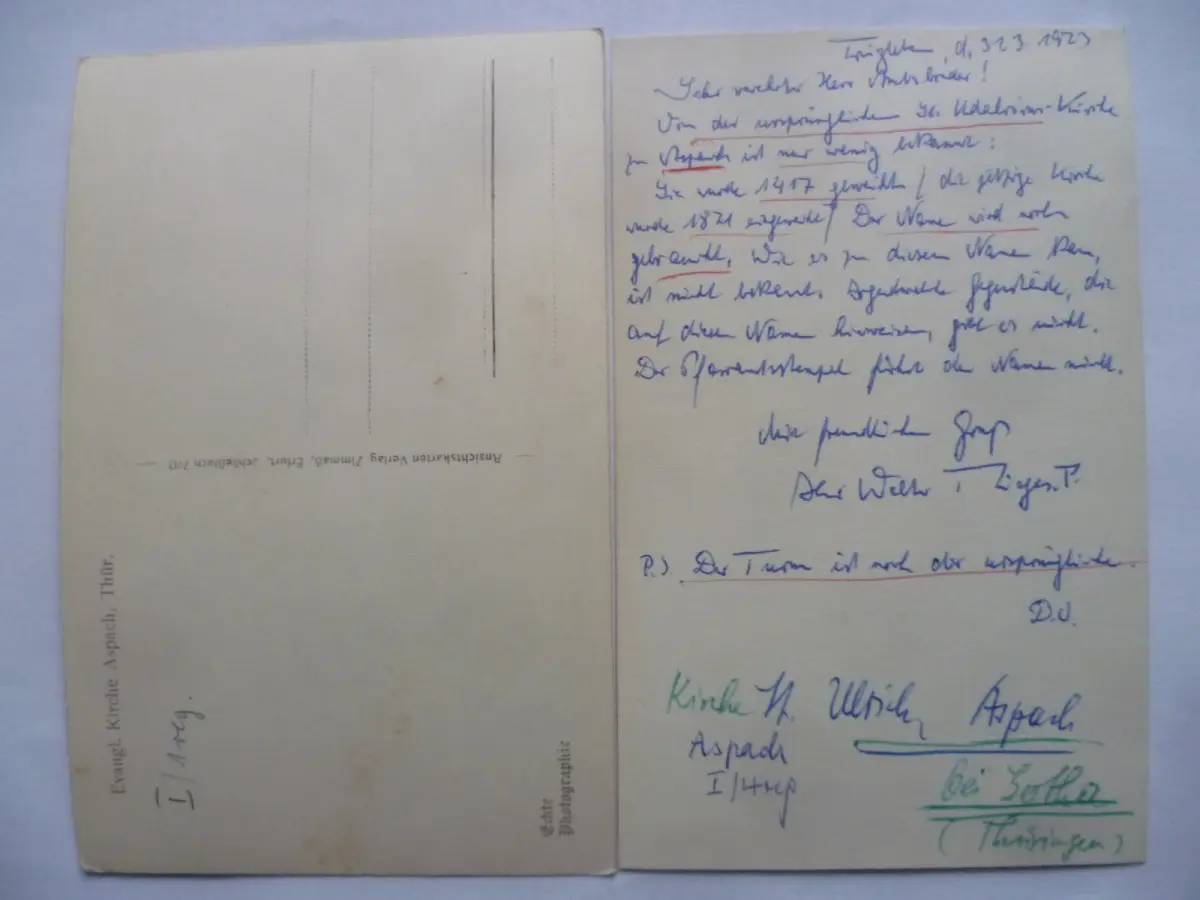 Evangl. Kirche Aspach, Thür.
I/1reg.
Ansichtskarten Verlag Zimmaß, Erfurt, Schließfach
Echte
Photographie
d. 31.3 1973
Sehr verehrter Herr Amtsbruder!
Von der ursprünglichen St. Udalricus-Kirche
zu Aspach ist nur wenig bekannt:
Sie wurde 1417 geweiht / die jetzige Kirche
wurde 1821 eingeweiht / Der Name wird noch
gebraucht. Wie es zu diesem Namen kam,
ist nicht bekannt. Irgendwelche Gegenstände, die
auf diesen Namen hinweisen, gibt es nicht.
Der Pfarramtsstempel führt den Namen nicht.
Mit freundlichem Gruß
Ihr Walter
P.S Der Turm ist noch der ursprüngliche.
D.O.
Kirche St. Ulrich, Aspach
Aspach
bei Gotha
(Thüringen)